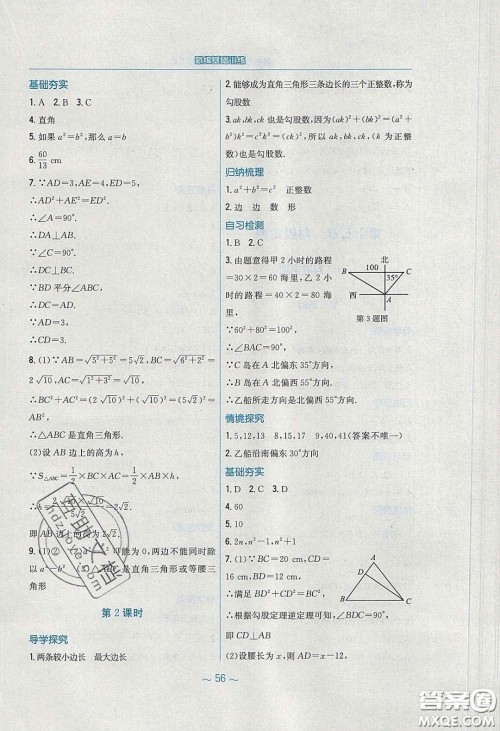 新编基础训练
基础夯实
1. A  2. B  3. C
4. 直角
5. 如果 a²=b²，那么 a=b
6. 60/13 cm
7. ∵AD=3，AE=4，ED=5，
∴AD²+AE²=ED².
∴∠A=90°.
∴DA⊥AB.
∵∠C=90°，
∴DC⊥BC.
∵BD 平分∠ABC，
∴DC=AD.
∵AD=3，
∴CD=3.
8. (1)∵AB=√(5²+5²)=5√2，BC=√(6²+2²)=
2√10，AC=√(1²+3²)=√10，
∴BC²+AC²=(2√10)²+(√10)²=(5√2)²=
AB²，
∴△ABC 是直角三角形.
(2)设 AB 边上的高为 h，
∵S△ABC=1/2×BC×AC=1/2×AB×h，
∴h=2√2.
即 AB 边上的高为 2√2.
9. (1)②
可能为 0，两边不能同时除
是直角三角形或等腰三
角形
第 2 课时
导学探究
1. 两条较小边长  最大边长
2. 能够成为直角三角形三条边长的三个正整数，称为
勾股数
3. ak，bk，ck 也是勾股数，因为(ak)²+(bk)²=(a²
+b²)k²=c²k²=(ck)²，所以 ak，bk，ck(k 为正整
数)也是勾股数.
归纳梳理
1. a²+b²=c²  正整数
2. 边  边  数  形
自习检测
1. B  2. C
3. 由题意得甲 2 小时的路程
=30×2=60 海里，乙 2 小
时的路程=40×2=80
海里，
∵60²+80²=100²，
∴∠BAC=90°，
∵C 岛在 A 北偏东 35°方向，
∴B 岛在 A 北偏西 55°方向.
∴乙船所走方向是北偏西 55°方向.
北
100
B
C
35°
西
A
第 3 题图
情境探究
1. 5,12,13  8,15,17  9,40,41(答案不唯一)
2. 乙船沿南偏东 30°方向
基础夯实
1. D  2. C  3. D
4. 60
5. 10
6. 2n，n²-1，n²+1
7. (1)∵BC=20 cm，CD=
16 cm，BD=12 cm，
∴满足 BD²+CD²=BC²，
∴根据勾股定理逆定理可知，∠BDC=90°，
即 CD⊥AB；
(2)设腰长为 x，则 AD=x-12，
A
D
B
C
～ 56 ～
答案圈
MXQE.COM